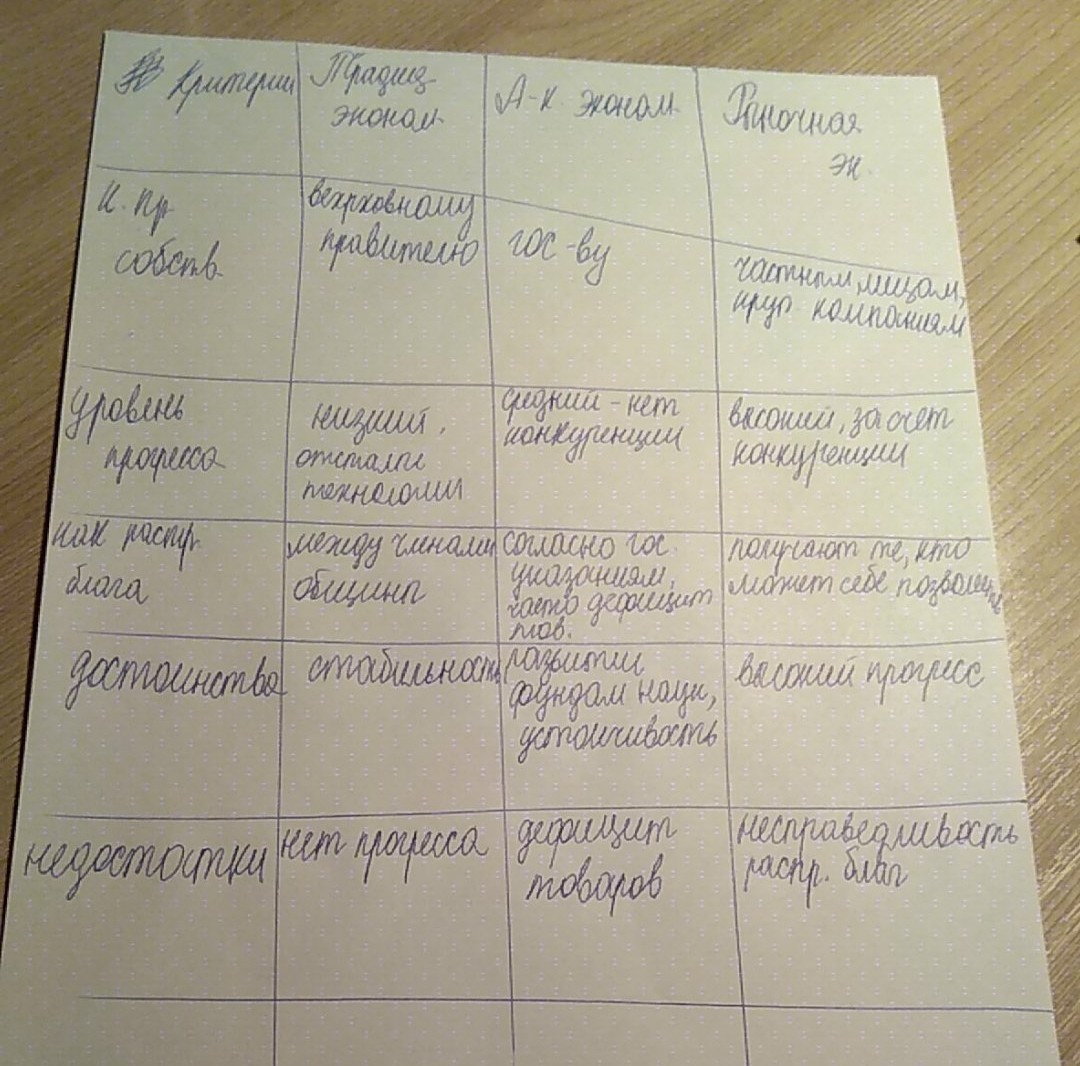 Критерии
Традиц.
эконом.
А-к. эконом.
Рыночная
эк.
К. пр.
собств.
вехрховному
правителю
гос-ву
частным лицам,
круп. компаниям
уровень
прогресса
низший,
отсталые
технологии
средний - нет
конкуренции
высокий, за счет
конкуренции
как распр.
блага
между членами
общины
согласно гос.
указаниям,
часто дефицит
тов.
получают те, кто
может себе позволить
достоинства
стабильность
развитии
фундам науки,
устойчивость
высокий прогресс
недостатки
нет прогресса
дефицит
товаров
несправедливость
распр. благ